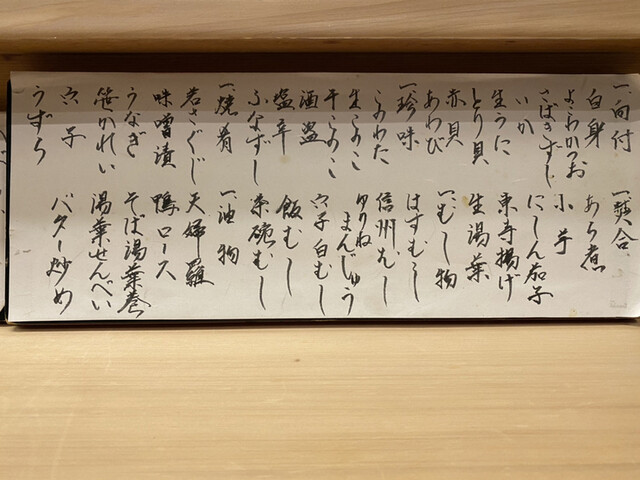 一、向付
白身
よこわかつお
さばきずし
いか
生うに
とり貝
赤貝
あわび
一、珍味
このわた
生このこ
干このこ
酒盗
塩辛
ふなずし
一、焼肴
若さぐじ
味噌漬
うなぎ
笹かれい
穴子
うずら
一、焚合
あら煮
小芋
にしん茄子
東寺揚げ
生湯葉
一、むし物
はすむし
信州むし
ゆりね
まんじゅう
穴子白むし
飯むし
茶碗むし
一、油物
天婦羅
鴨ロース
そば湯葉巻
湯葉せんべい
バター炒め